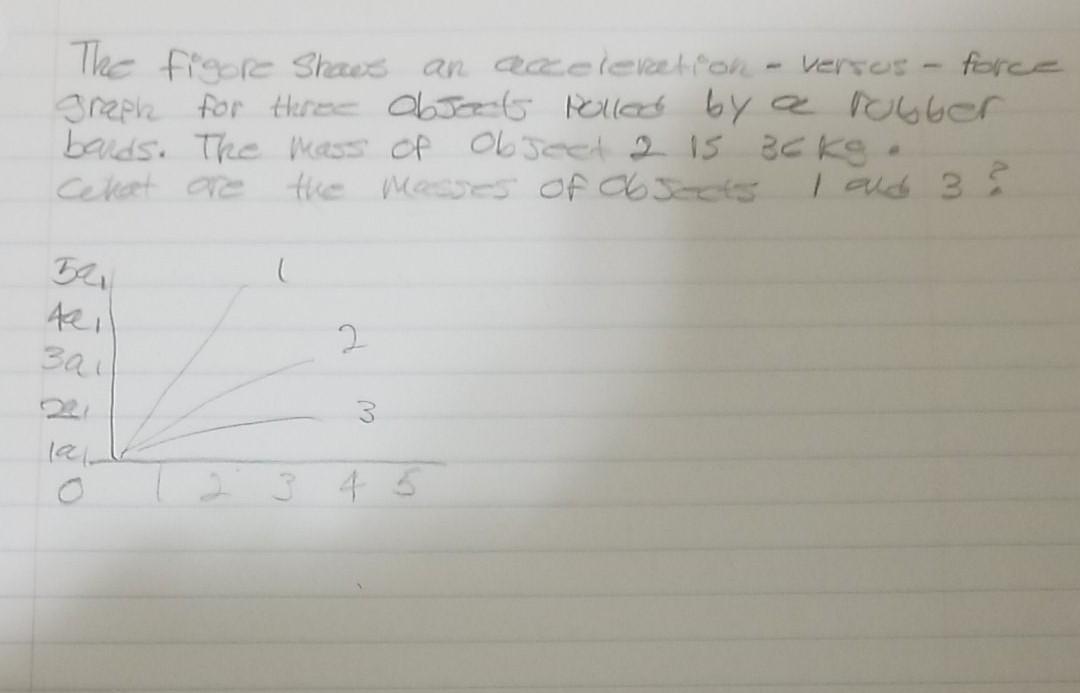 The figure Shows an acceleration - versus - force
graph for three Objects Pulled by a rubber
bands. The Mass of Object 2 is 36 kg.
What are the Masses of Objects 1 and 3 ?
5a1
1
4a1
2
3a1
2a1
3
1a1
0 1 2 3 4 5